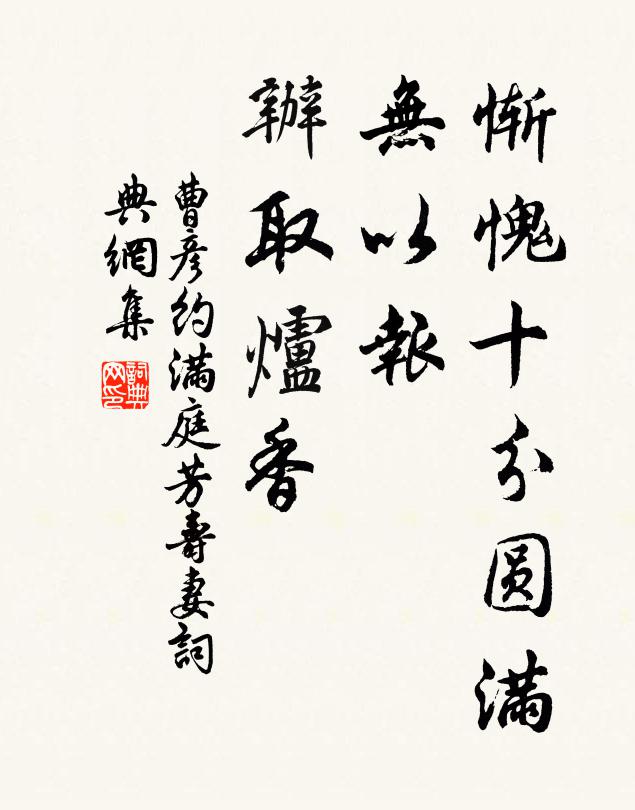 慚愧十分圓滿
無以報
辦取爐香
曹彦約滿庭芳壽妻詞
典網集
詞典
网印